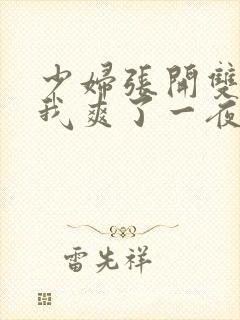 少婦張開雙
我爽了一夜
雷先祥